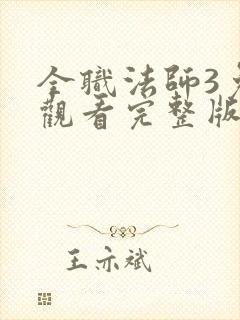 全職法師3
觀看完整版
王亦斌